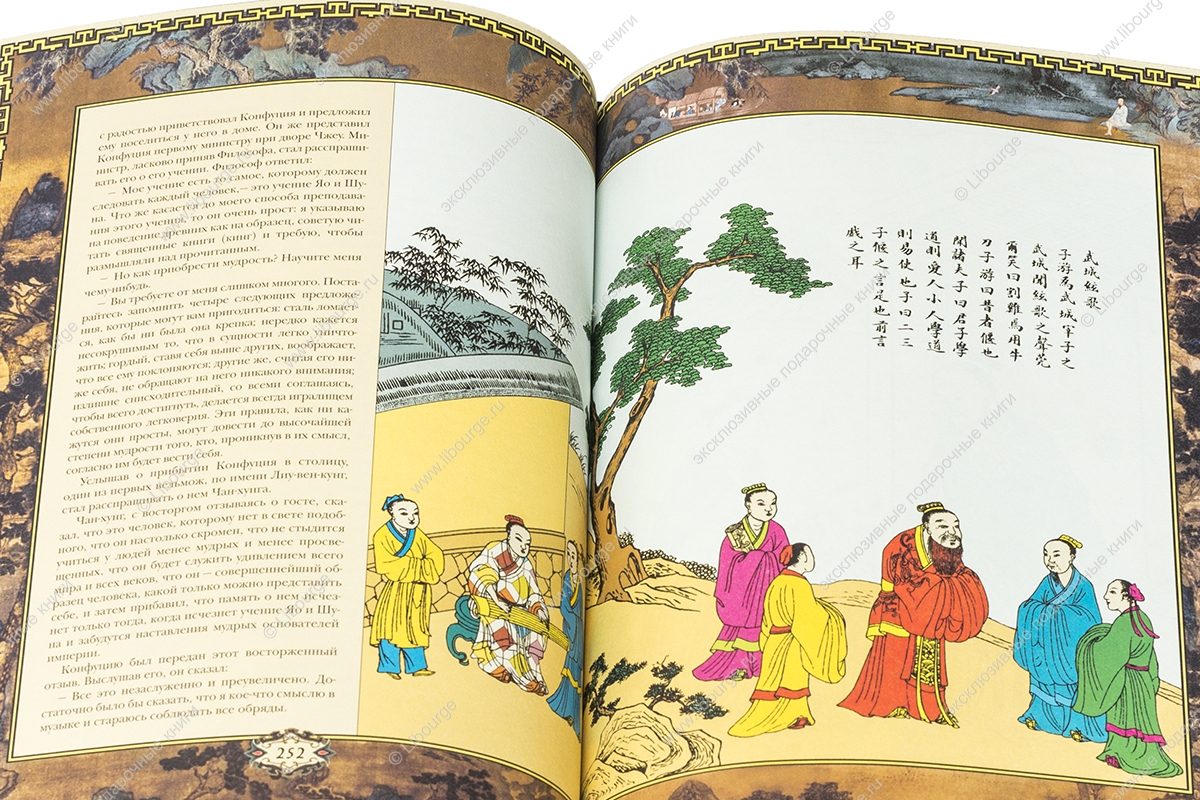 с радостью приветствовал Конфуция и предложил
ему поселиться у него в доме. Он же представил
Конфуция первому министру при дворе Чжеу. Ми-
нистр, ласково приняв Философа, стал расспраши-
вать его о его учении. Философ ответил:
— Мое учение есть то самое, которому должен
следовать каждый человек,— это учение Яо и Шу-
на. Что же касается до моего способа преподава-
ния этого учения, то он очень прост: я указываю
на поведение древних как на образец, советую чи-
тать священные книги (кинг) и требую, чтобы
размышляли над прочитанным.
— Но как приобрести мудрость? Научите меня
чему-нибудь.
— Вы требуете от меня слишком многого. Поста-
райтесь запомнить четыре следующих предложе-
ния, которые могут вам пригодиться: сталь ломает-
ся, как бы ни была она крепка; нередко кажется
несокрушимым то, что в сущности легко уничто-
жить; гордый, ставя себя выше других, воображает,
что все ему поклоняются; другие же, считая его ни-
же себя, не обращают на него никакого внимания;
излишне снисходительный, со всеми соглашаясь,
чтобы всего достигнуть, делается всегда игралищем
собственного легковерия. Эти правила, как ни ка-
жутся они просты, могут довести до высочайшей
степени мудрости того, кто, проникнув в их смысл,
согласно им будет вести себя.
Услышав о прибытии Конфуция в столицу,
один из первых вельмож, по имени Лиу-вен-кунг,
стал расспрашивать о нем Чан-хунга.
Чан-хунг, с восторгом отзываясь о госте, ска-
зал, что это человек, которому нет в свете подоб-
ного, что он настолько скромен, что не стыдится
учиться у людей менее мудрых и менее просве-
щенных, что он будет служить удивлением всего
мира и всех веков, что он — совершеннейший об-
разец человека, какой только можно представить
себе, и затем прибавил, что память о нем исчез-
нет только тогда, когда исчезнет учение Яо и Шу-
на и забудутся наставления мудрых основателей
империи.
Конфуцию был передан этот восторженный
отзыв. Выслушав его, он сказал:
— Все это незаслуженно и преувеличено. До-
статочно было бы сказать, что я кое-что смыслю в
музыке и стараюсь соблюдать все обряды.
252
武城絃歌
子游為武城宰子之
武城聞絃歌之聲莞
爾笑曰割雞焉用牛
刀子游曰昔者偃也
聞諸夫子曰君子學
道則愛人小人學道
則易使也子曰二三
子偃之言是也前言
戲之耳
© Libourge
www.libourge.ru
эксклюзивные подарочные книги